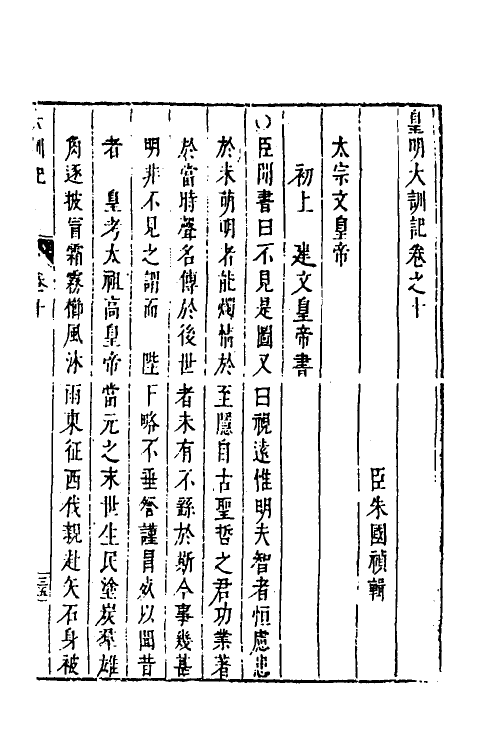 皇明大訓記卷之十
臣朱國禎輯
太宗文皇帝
初上建文皇帝書
○臣聞書曰不見是圖又曰視遠惟明夫智者恒慮患
於未萌明者能燭情於至隱自古聖哲之君功業著
於當時聲名傳於後世者未有不繇於斯今事幾甚
明非不見之謂而 陛下略不垂察謹冒死以聞昔
者 皇考太祖高皇帝當元之末世生民塗炭羣雄
角逐披冒霜露櫛風沐雨東征西伐親赴矢石身被
大訓記 卷十